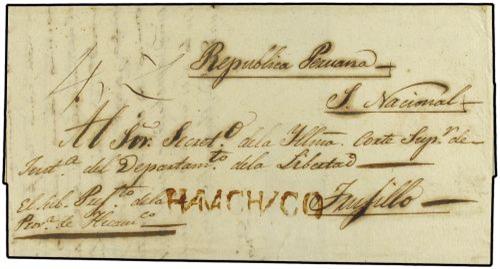 Republica Peruana
S. Nacional
Al Sor. Secreto. dela Yllma. Corte Supr. de
Justa. del Departamto. dela Libertad
El sub. Prefto. dela HAACH/CO Trujillo
Prova. de Huamco.